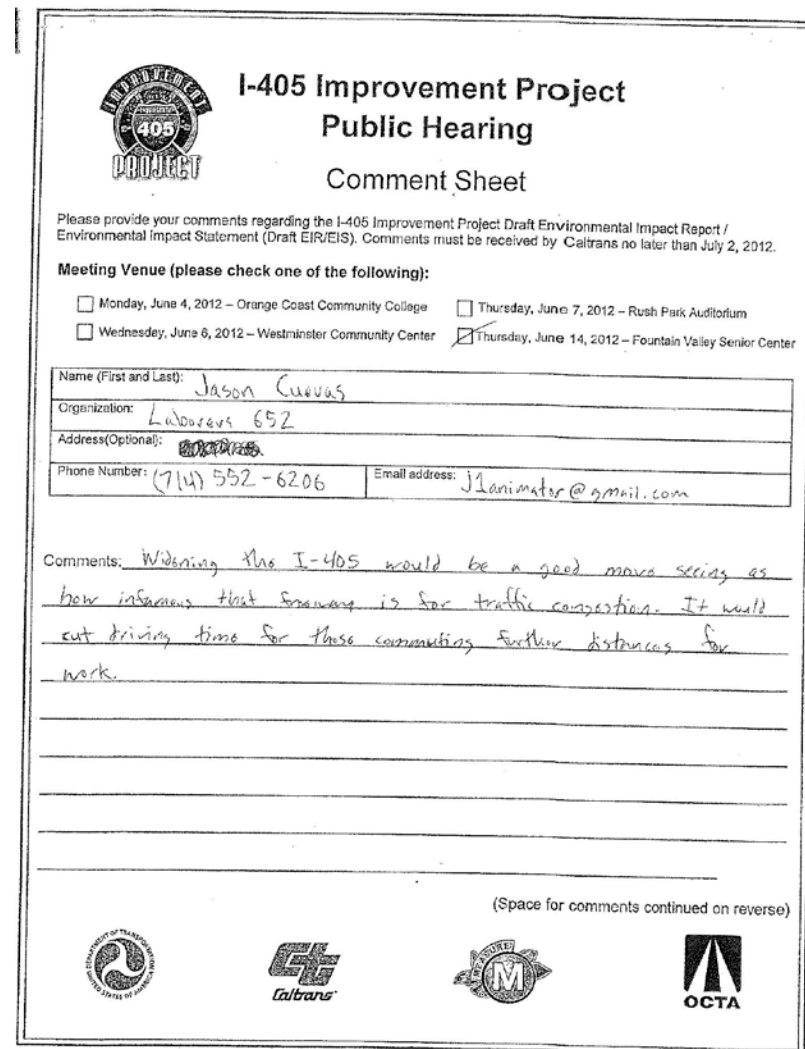 IMPROVEMENT
405
PROJECT
I-405 Improvement Project
Public Hearing
Comment Sheet
Please provide your comments regarding the I-405 Improvement Project Draft Environmental Impact Report /
Environmental Impact Statement (Draft EIR/EIS). Comments must be received by Caltrans no later than July 2, 2012.
Meeting Venue (please check one of the following):
Monday, June 4, 2012 – Orange Coast Community College
Thursday, June 7, 2012 – Rush Park Auditorium
Wednesday, June 6, 2012 – Westminster Community Center
Thursday, June 14, 2012 – Fountain Valley Senior Center
Name (First and Last): Jason Cuevas
Organization: Laborers 652
Address(Optional):
Phone Number: (714) 552-6206
Email address: j1animator@gmail.com
Comments: Widening the I-405 would be a good move seeing as
how infamous that freeway is for traffic congestion. It would
cut driving time for those commuting further distances for
work.
(Space for comments continued on reverse)
DEPARTMENT OF TRANSPORTATION
UNITED STATES OF AMERICA
Caltrans
MEASURE
M
OCTA